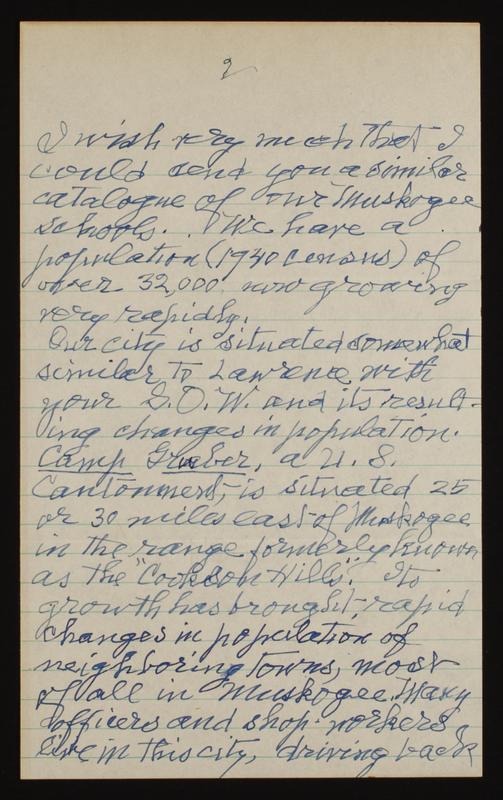 2
I wish very much that I
could send you a similar
catalogue of our Muskogee
schools. We have a
population (1940 census) of
over 32,000. now growing
very rapidly.
Our city is situated somewhat
similar to Lawrence with
your S.O.W. and its result-
ing changes in population.
Camp Gruber, a U.S.
Cantonment, is situated 25
or 30 miles east of Muskogee
in the range formerly known
as the "Cookson Hills". Its
growth has brought rapid
changes in population of
neighboring towns, most
of all in Muskogee. Many
officers and shop-workers
live in this city, driving back